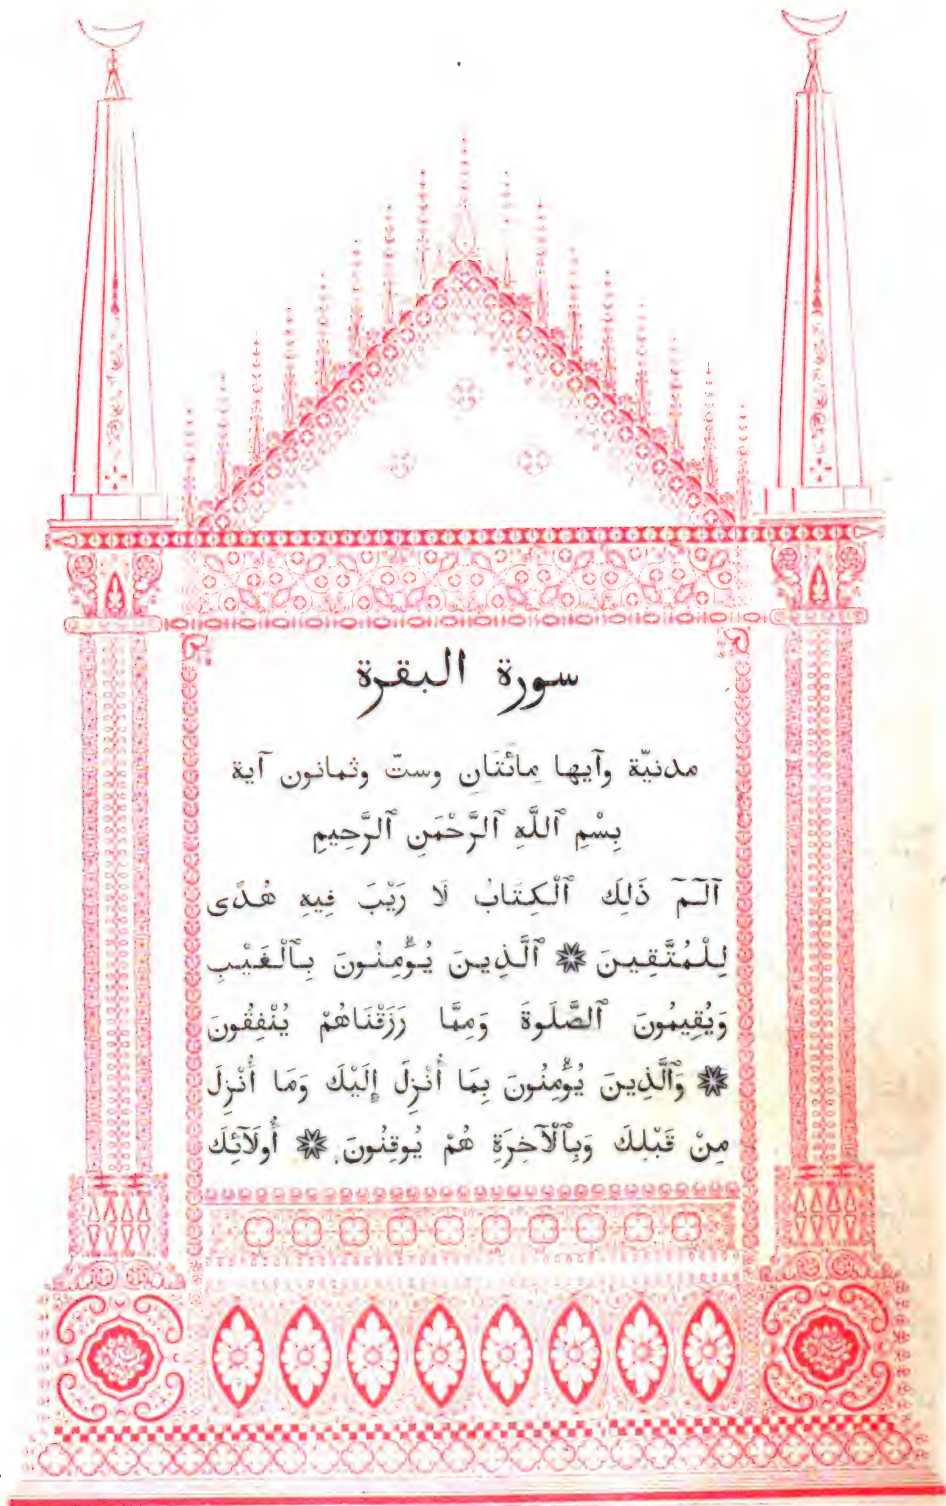 سورة البقرة
مدنيّة وآيها مِائَتَانِ وستّ وثمانون آية
بِسْمِ ٱللَّهِ ٱلرَّحْمَنِ ٱلرَّحِيمِ
آلٓمٓ ذَلِكَ ٱلْكِتَابُ لَا رَيْبَ فِيهِ هُدًى
لِلْمُتَّقِينَ ❋ ٱلَّذِينَ يُؤْمِنُونَ بِٱلْغَيْبِ
وَيُقِيمُونَ ٱلصَّلَوةَ وَمِمَّا رَزَقْنَاهُمْ يُنْفِقُونَ
❋ وَٱلَّذِينَ يُؤْمِنُونَ بِمَا أُنْزِلَ إِلَيْكَ وَمَا أُنْزِلَ
مِنْ قَبْلِكَ وَبِٱلْآخِرَةِ هُمْ يُوقِنُونَ ❋ أُولَآئِكَ